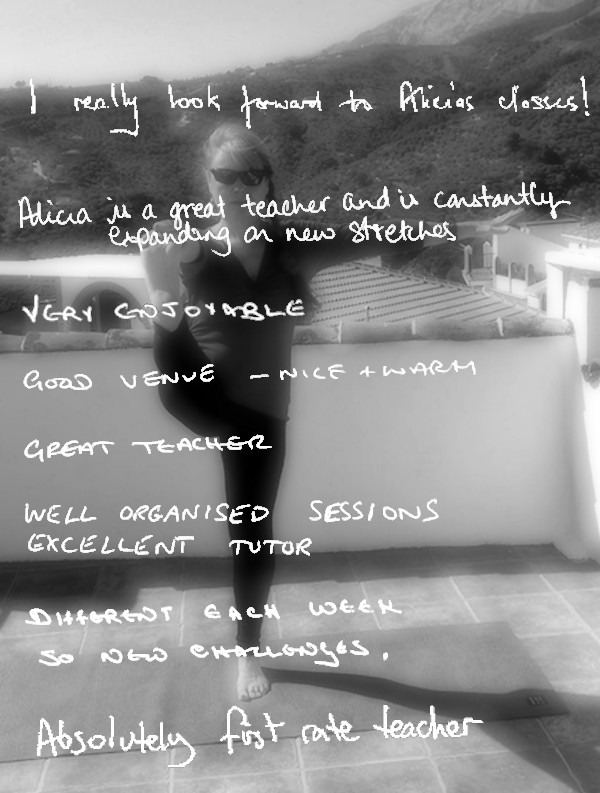 I really look forward to Alicias classes!
Alicia is a great teacher and is constantly
expanding on new stretches
VERY ENJOYABLE
GOOD VENUE - NICE + WARM
GREAT TEACHER
WELL ORGANISED SESSIONS
EXCELLENT TUTOR
DIFFERENT EACH WEEK
SO NEW CHALLENGES.
Absolutely first rate teacher